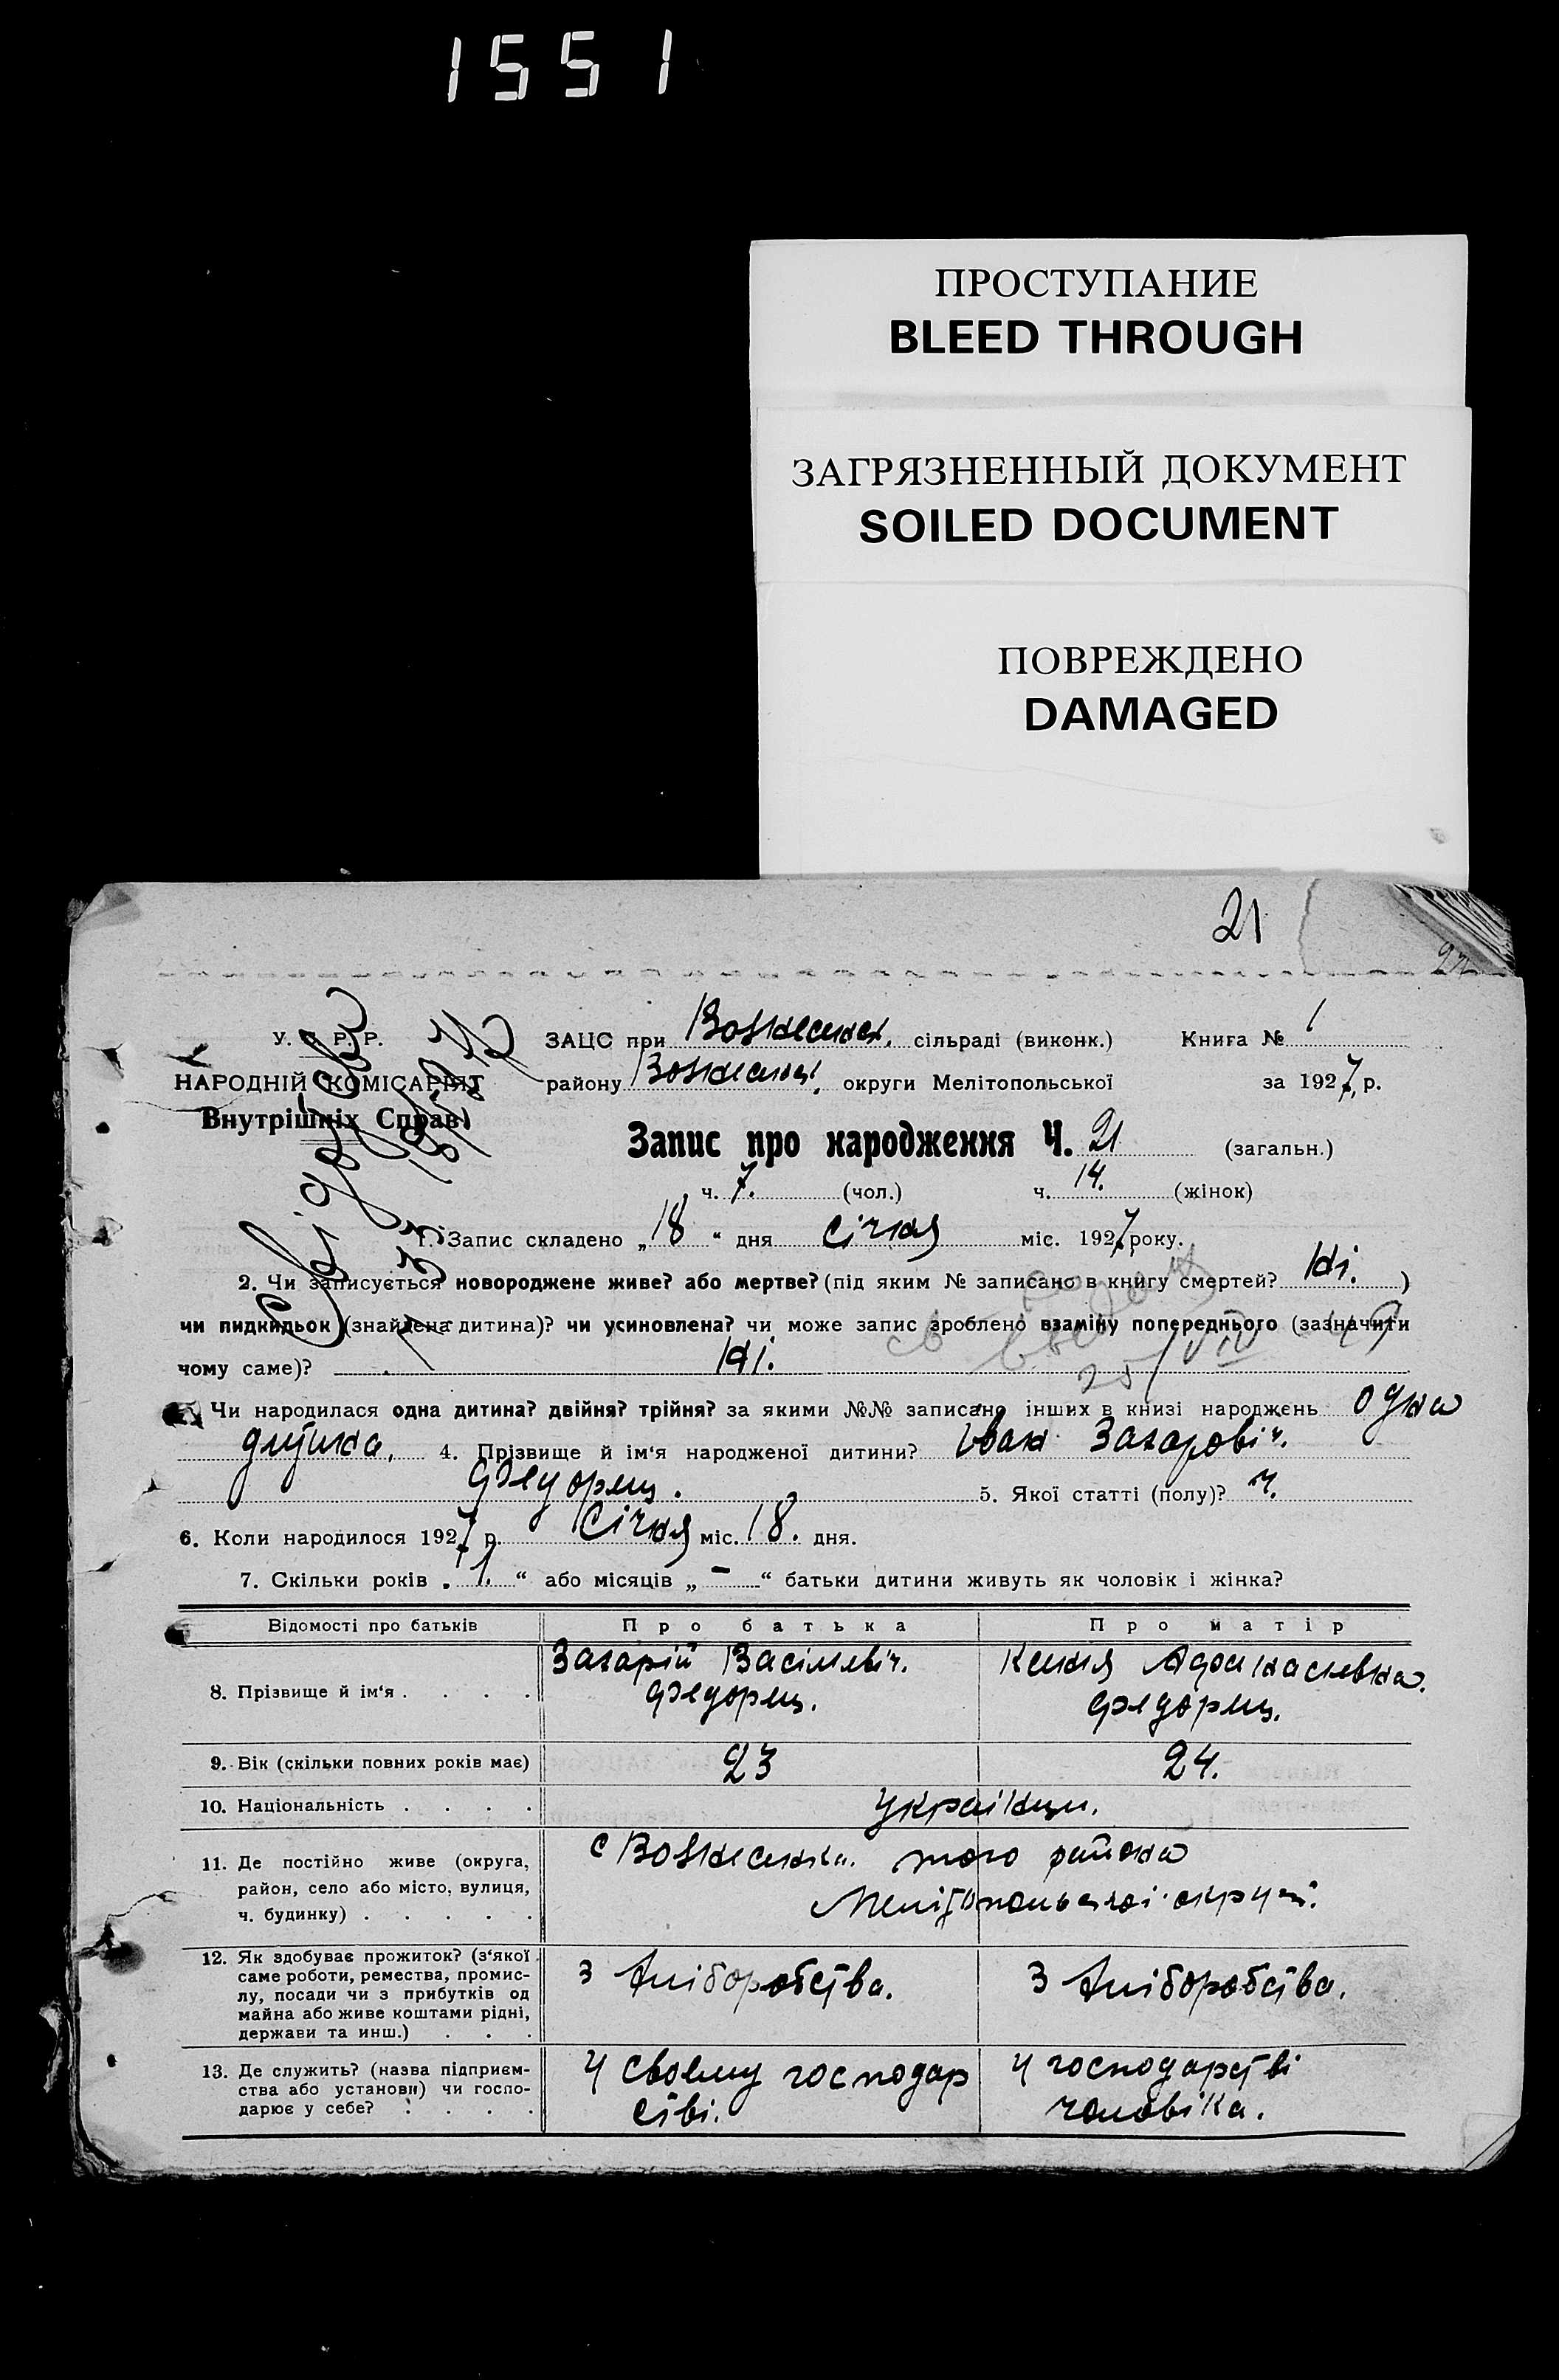 1551
ПРОСТУПАНИЕ
BLEED THROUGH
ЗАГРЯЗНЕННЫЙ ДОКУМЕНТ
SOILED DOCUMENT
ПОВРЕЖДЕНО
DAMAGED
21
22
У. С. Р. Р.
НАРОДНІЙ КОМІСАРІЯТ
Внутрішніх Справ
ЗАЦС при Вознесенск. сільраді (виконк.) Книга № 1
району Вознесенс. округи Мелітопольської за 1927, р.
Запис про народження Ч. 21 (загальн.)
ч. 7. (чол.) ч. 14. (жінок)
1. Запис складено „18“ дня Січня міс. 1927 року.
2. Чи записується новороджене живе? або мертве? (під яким № записано в книгу смертей? Ні. )
чи пидкидьок (знайдена дитина)? чи усиновлена? чи може запис зроблено взаміну попереднього (зазначити
чому саме)? Ні.
Чи народилася одна дитина? двійня? трійня? за якими №№ записано інших в книзі народжень одна
дитина. 4. Прізвище й ім‘я народженої дитини? Іван Захаровіч.
Федорец. 5. Якої статті (полу)? ч.
6. Коли народилося 1927 р. Січня міс. 18. дня.
7. Скільки років „1.“ або місяців „–“ батьки дитини живуть як чоловік і жінка?
Відомості про батьків Про батька Про матір
8. Прізвище й ім‘я . . . . Захарій Васілевіч. Федорец. Ксенія Афонасиевна. Федорец.
9. Вік (скільки повних років має) 23 24.
10. Національність . . . . Українци.
11. Де постійно живе (округа, район, село або місто, вулиця, ч. будинку) . . . . . с Вознесенка. того района Мелітопольскої округі.
12. Як здобуває прожиток? (з‘якої саме роботи, ремества, промислу, посади чи з прибутків од майна або живе коштами рідні, держави та инш.) . . . З хліборобства. З хліборобства.
13. Де служить? (назва підприємства або установи) чи господарює у себе? . . . . У своему господарстві. У господарстві чоловіка.